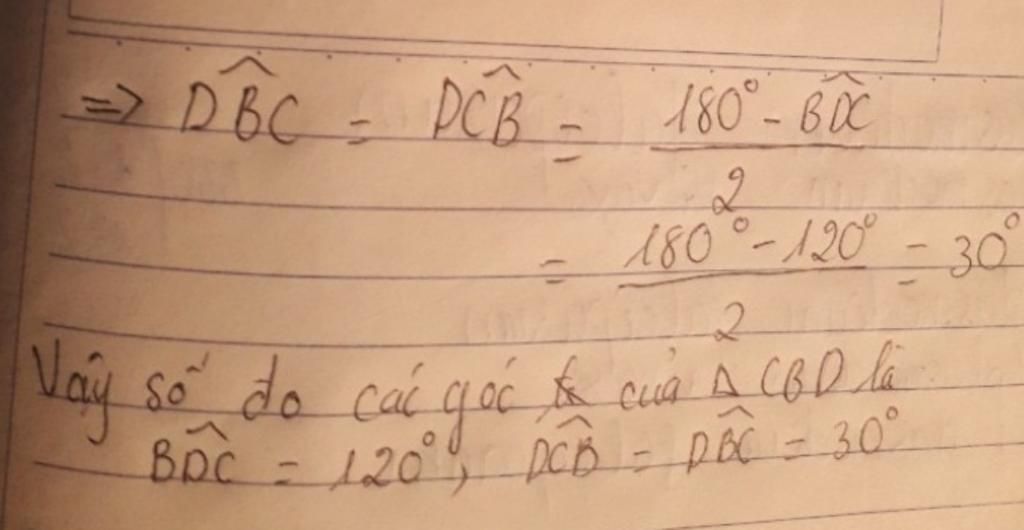 => DB̂C = DĈB = (180° - BD̂C) / 2
= (180° - 120°) / 2 = 30°
Vậy số đo các góc của Δ CBD là
BD̂C = 120°, DĈB = DB̂C = 30°